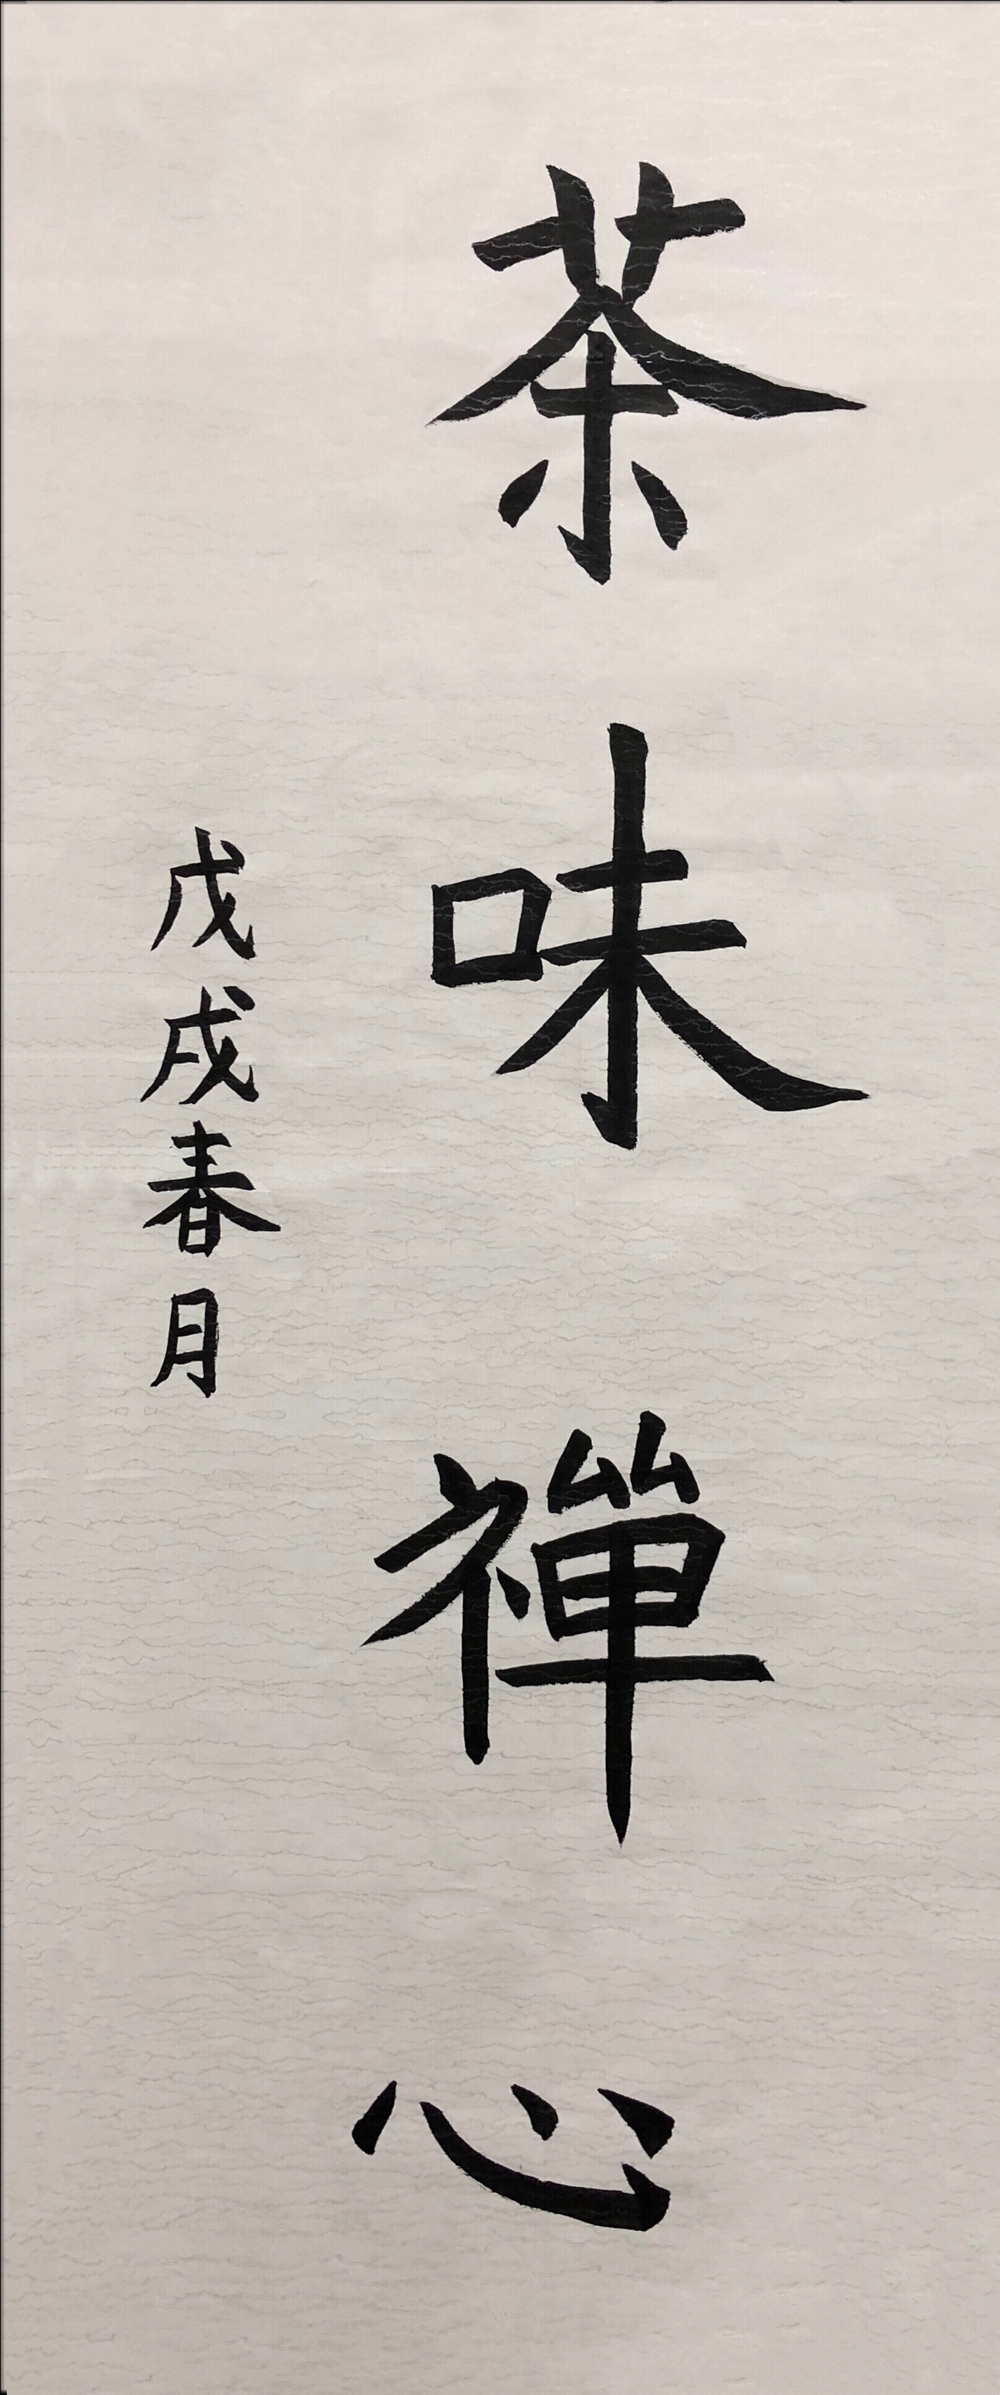 茶味禪心
戊戌春月